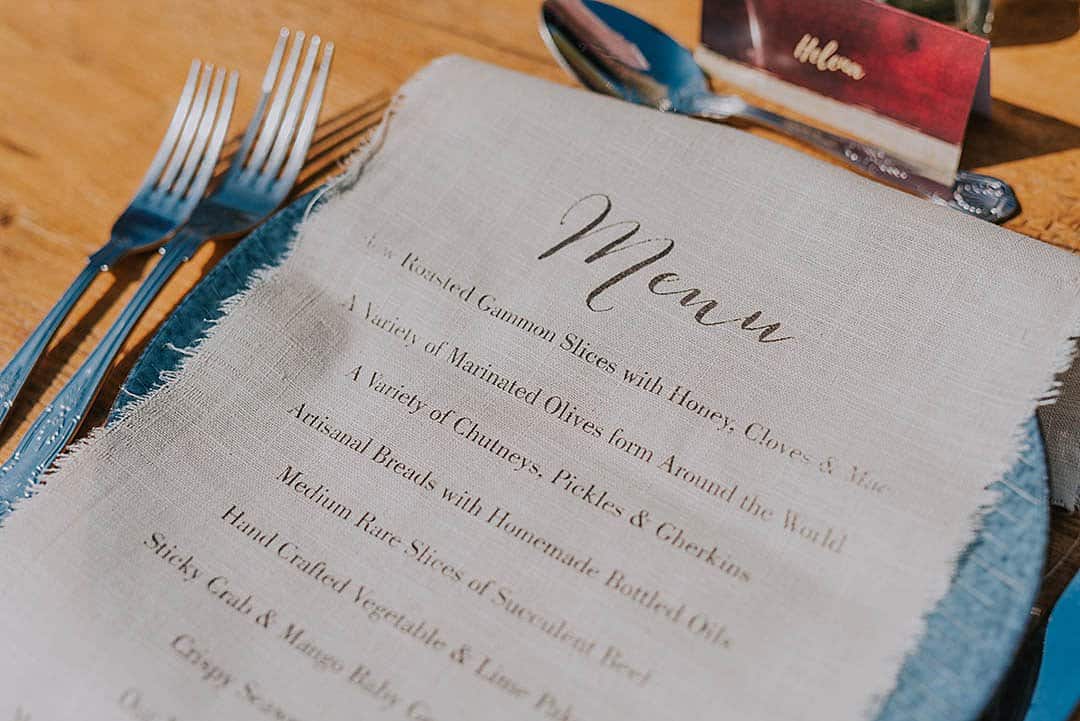 Helven
Menu
Roasted Gammon Slices with Honey, Cloves & Mace
A Variety of Marinated Olives form Around the World
A Variety of Chutneys, Pickles & Gherkins
Artisanal Breads with Homemade Bottled Oils
Medium Rare Slices of Succulent Beef
Hand Crafted Vegetable & Lime
Sticky Crab & Mango Baby
Crispy